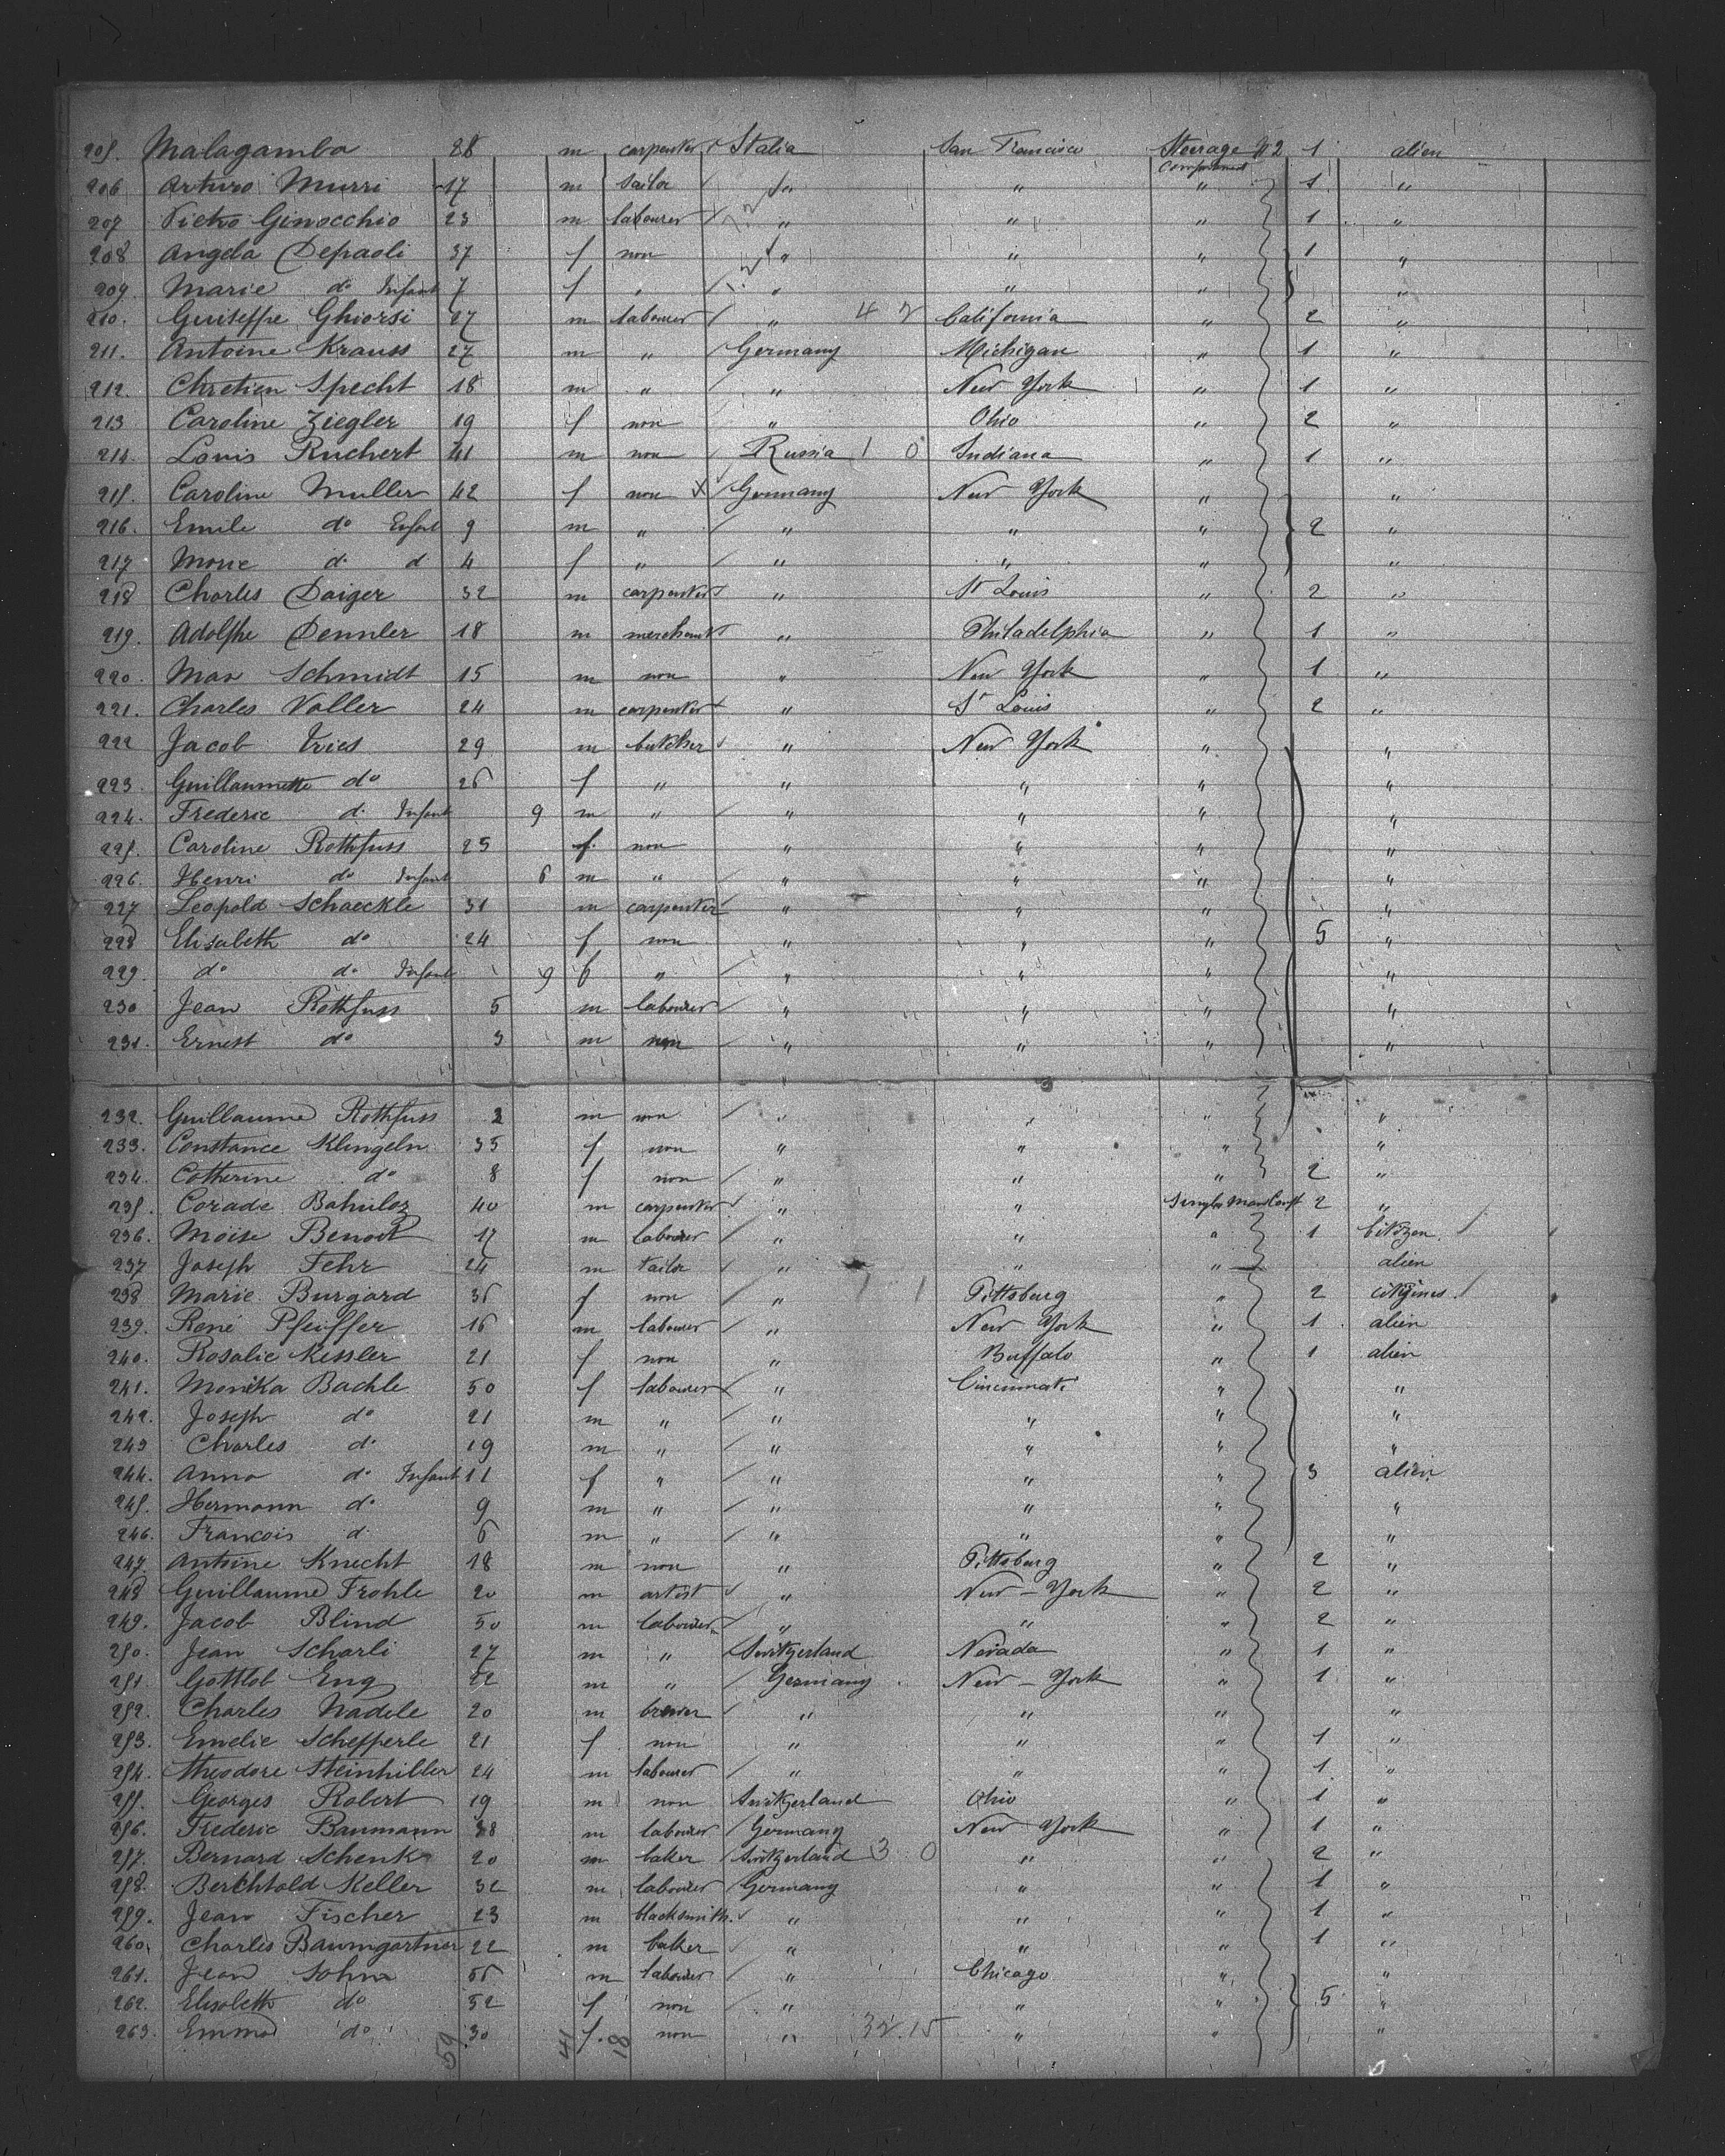 205. Malagamba 28 m carpenter Italia San Francisco Steerage #2 1 alien
206 Arturo Murri 17 m tailor " " Compartment " 1 "
207 Pietro Ginocchio 23 m labourer " " " 1 "
208 Angela Depaoli 37 f non " " " 1 "
209 Marie do Infant 7 f " " " " "
210. Guiseppe Ghiorsi 27 m labourer " 4 2 California " 2 "
211. Antoine Krauss 27 m " Germany Michigan " 1 "
212. Chretien Specht 18 m " " New York " 1 "
213 Caroline Ziegler 19 f non " Ohio " 2 "
214. Louis Ruchert 41 m non Russia 1 0 Indiana " 1 "
215. Caroline Muller 42 f non X Germany New York " "
216. Emile do Enfant 9 m " " " " 2 "
217 Marie d. d 4 f " " " " "
218 Charles Daiger 32 m carpenter " St Louis " 2 "
219. Adolphe Dennler 18 m merchant " Philadelphia " 1 "
220. Max Schmidt 15 m non " New York " 1 "
221. Charles Valler 24 m carpenter " St Louis " 2 "
222 Jacob Vries 29 m butcher " New York " "
223. Guillaumette do 26 f " " " " "
224. Frederic d. Infant 9 m " " " " "
225. Caroline Rothfuss 25 f. non " " " "
226. Henri do Infant 6 m " " " " "
227 Leopold Schaeckle 31 m carpenter " " " "
228 Elisabeth do 24 f non " " " 5 "
229. do do Infant 9 f " " " " "
230 Jean Rothfuss 5 m labourer " " " "
231. Ernest do 3 m non " " " "
232. Guillaume Rothfuss 2 m non " " " "
233. Constance Klingeln 35 f non " " " "
234. Catherine do 8 f non " " " 2 "
235. Corade Bahuloz 40 m carpenter " " 2 "
236. Moïse Benoit 17 m labourer " " " 1 Citizen
237 Joseph Fehr 24 m tailor " " " alien
238 Marie Burgard 36 f non " 1 1 Pittsburg " 2 citizens
239. René Pfeiffer 16 m labourer " New York " 1 alien
240. Rosalie Kessler 21 f non " Buffalo " 1 alien
241. Monika Bachle 50 f labourer " Cincinnati " "
242. Joseph do 21 m " " " " "
243 Charles do 19 m " " " " "
244. Anna do Infant 11 f " " " " 3 alien
245. Hermann do 9 m " " " " "
246. Francois d. 6 m " " " " "
247. Antoine Knecht 18 m non " Pittsburg " 2 "
248 Guillaume Frohle 20 m artist " New-York " 2 "
249. Jacob Blind 50 m labourer " " " 2 "
250. Jean Scharli 27 m " Switzerland Nevada " 1 "
251 Gottlob Eng 22 m " Germany New-York " 1 "
252. Charles Nadele 20 m brewer " " " "
253. Emelie Schefferle 21 f non " " " 1 "
254. Theodore Steinhilber 24 m labourer " " " 1 "
255. Georges Robert 19 m non Switzerland Ohio " 1 "
256. Frederic Baumann 38 m labourer Germany New York " 1 "
257. Bernard Schenk 20 m baker Switzerland 3 0 " " 2 "
258. Berchtold Keller 32 m labourer Germany " " 1 "
259. Jean Fischer 23 m blacksmith. " " " 1 "
260. Charles Baumgartner 22 m baker " " " 1 "
261. Jean Sohm m labourer " Chicago " "
262. Elisabeth do 52 f non " " " 5 "
263. Emma do 30 f. non " 32.15 " " "
59 41 18